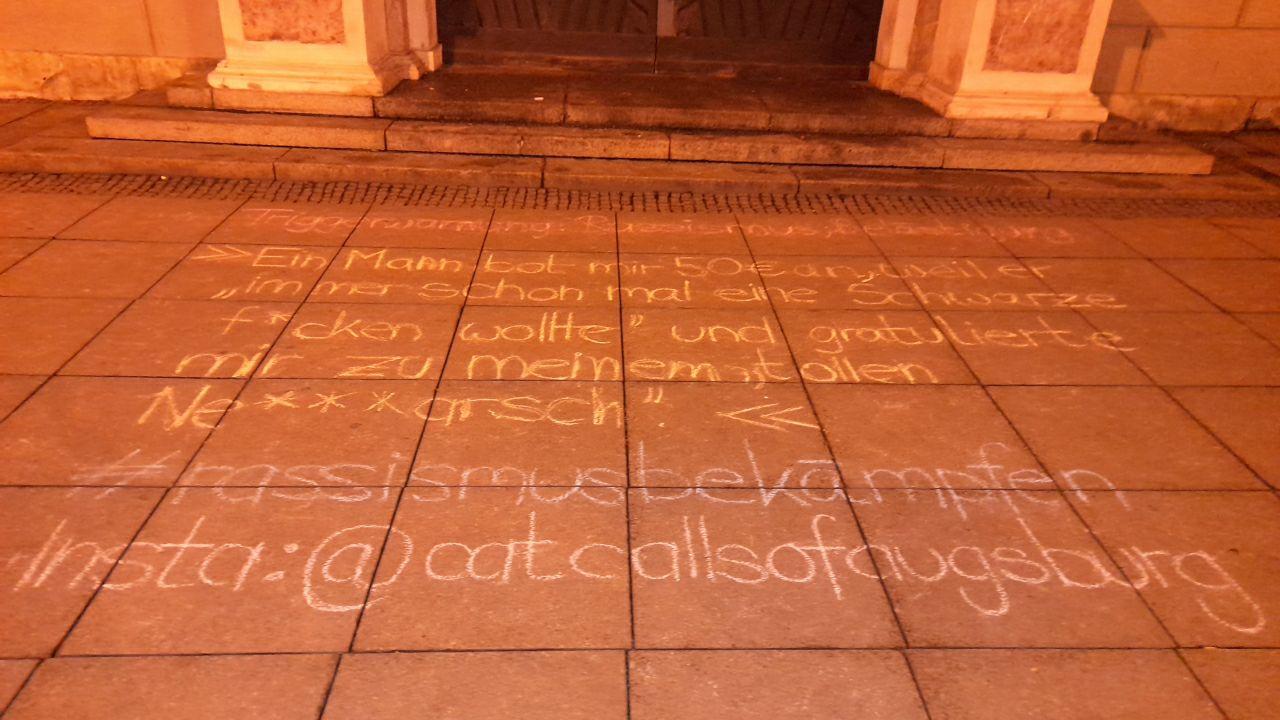 Triggerwarnung: Rassismus, Belästigung
»Ein Mann bot mir 50€ an, weil er
„immer schon mal eine Schwarze
f*cken wollte” und gratulierte
mir zu meinem „tollen
Ne***arsch”. «
#rassismusbekämpfen
Insta:@catcallsofaugsburg